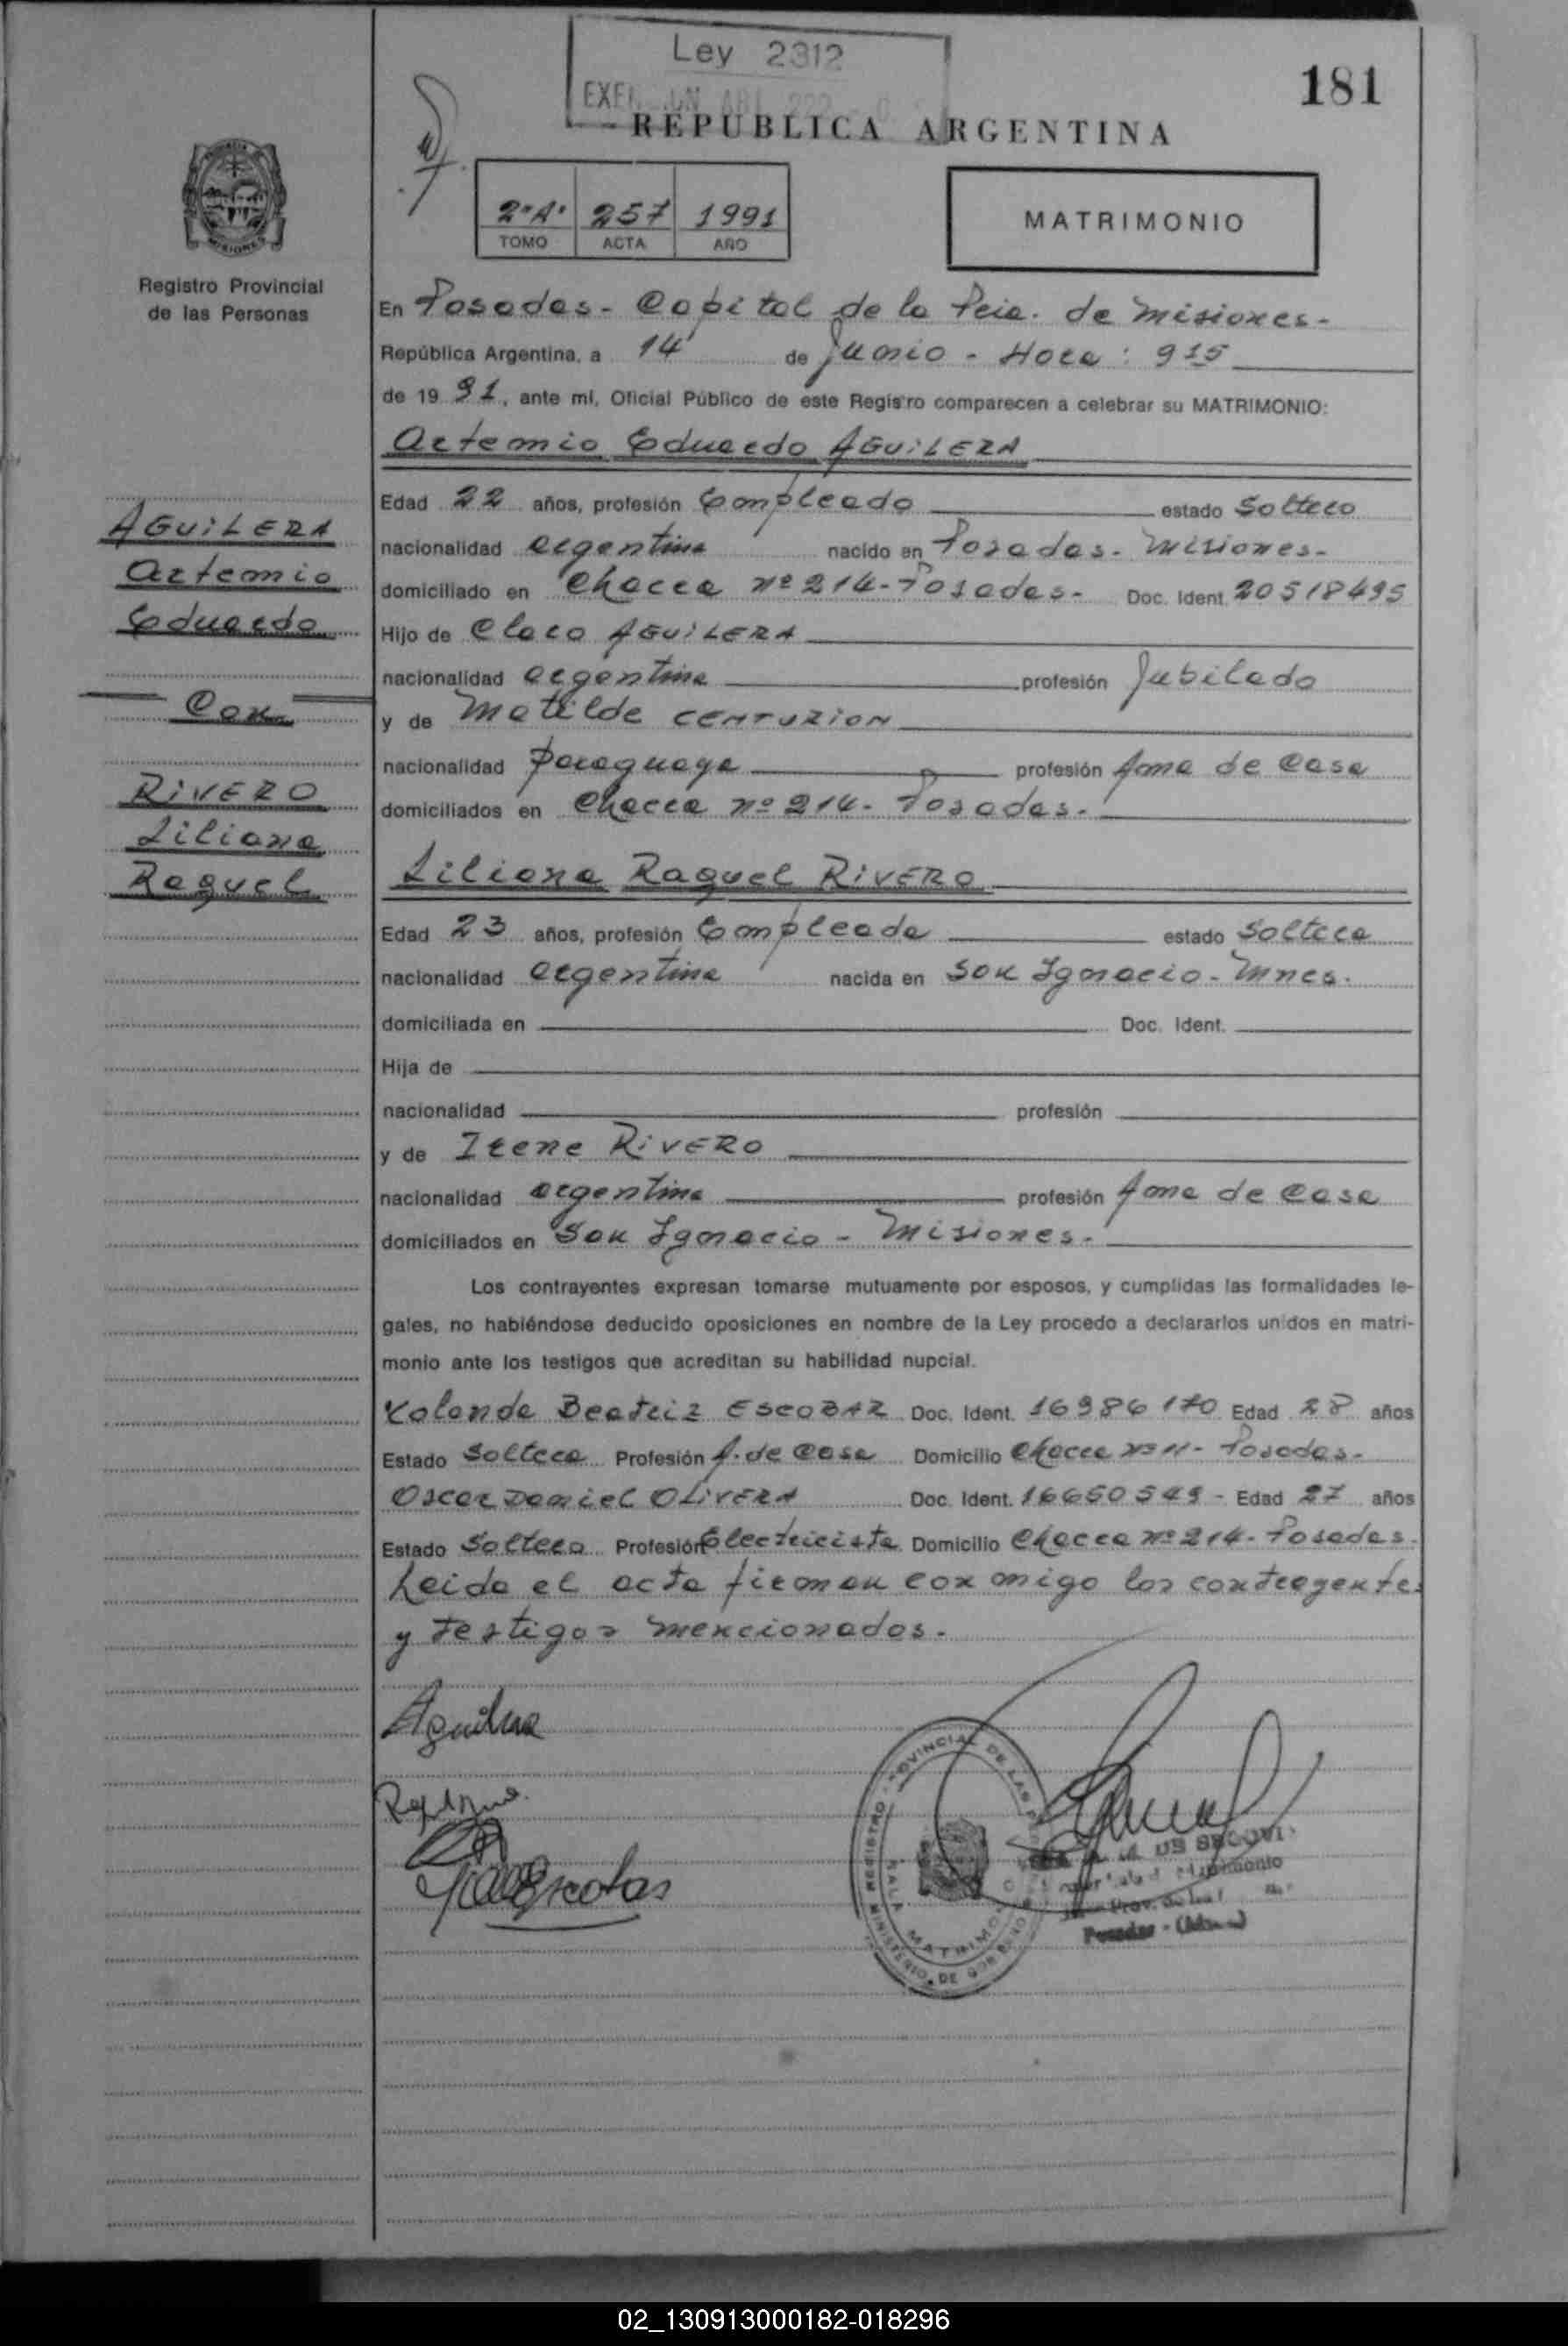 Ley 2312
181
REPUBLICA ARGENTINA
2ºAº 257 1991
TOMO ACTA AÑO
MATRIMONIO
MISIONES
Registro Provincial
de las Personas
En Posadas - Capital de la Pcia. de Misiones -
República Argentina, a 14 de Junio - Hora: 915
de 19 91, ante mí, Oficial Público de este Registro comparecen a celebrar su MATRIMONIO:
Artemio Eduardo AGUILERA
Edad 22 años, profesión Empleado estado Soltero
nacionalidad argentina nacido en Posadas - Misiones -
domiciliado en Chacra nº 214 - Posadas - Doc. Ident. 20518495
Hijo de Claro AGUILERA
nacionalidad argentina profesión Jubilado
y de Matilde CENTURION
nacionalidad paraguaya profesión Ama de Casa
domiciliados en Chacra nº 214 - Posadas -
AGUILERA
Artemio
Eduardo
Con
RIVERO
Liliana
Raquel
Liliana Raquel RIVERO
Edad 23 años, profesión Empleada estado Soltera
nacionalidad argentina nacida en San Ignacio - Mnes.
domiciliada en Doc. Ident.
Hija de
nacionalidad profesión
y de Irene RIVERO
nacionalidad argentina profesión Ama de Casa
domiciliados en San Ignacio - Misiones -
Los contrayentes expresan tomarse mutuamente por esposos, y cumplidas las formalidades le-
gales, no habiéndose deducido oposiciones en nombre de la Ley procedo a declararlos unidos en matri-
monio ante los testigos que acreditan su habilidad nupcial.
Yolanda Beatriz ESCOBAR Doc. Ident. 16986170 Edad 28 años
Estado Soltera Profesión A. de Casa Domicilio Chacra nº 11 - Posadas -
Oscar Daniel OLIVERA Doc. Ident. 16650549 - Edad 27 años
Estado Soltero Profesión Electricista Domicilio Chacra nº 214 - Posadas.
Leida el acta firman con migo los contrayentes
y testigos mencionados.
Aguilera
REGISTRO PROVINCIAL DE LAS
MINISTERIO DE GOBIERNO
Posadas
02_130913000182-018296